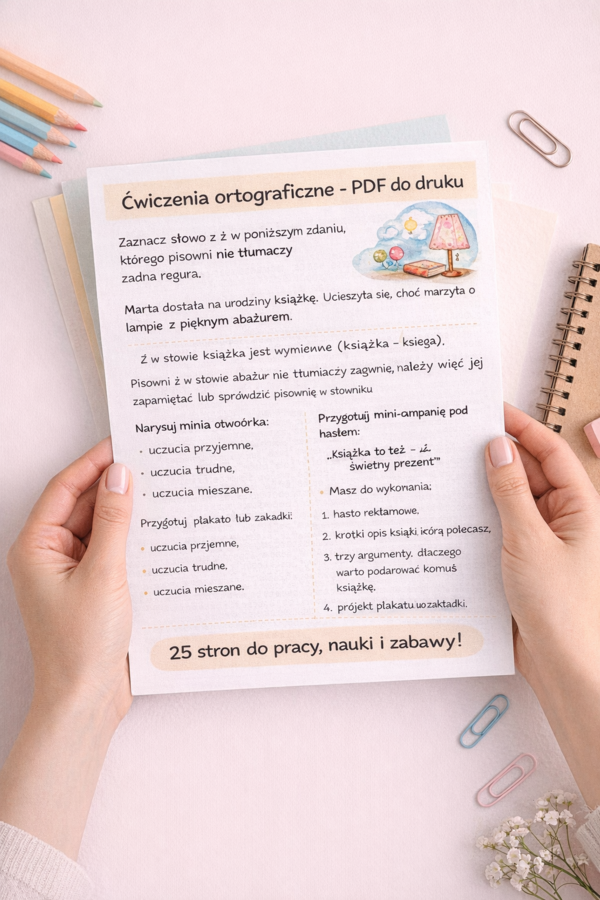 Ćwiczenia ortograficzne - PDF do druku
Zaznacz słowo z ż w poniższym zdaniu,
którego pisowni nie tłumaczy
zadna regura.
Marta dostała na urodziny książkę. Ucieszyta się, choć marzyta o
lampie z pięknym abażurem.
Ż w stowie książka jest wymienne (książka - ksiega).
Pisowni ż w stowie abażur nie tłumiaczy zagwnie, należy więć jej
zapamiętać lub sprówdzić pisownię w stowniku
Narysuj minia otwoórka:
• uczucia przyjemne,
• uczucia trudne,
• uczucia mieszane.
Przygotuj plakato lub zakadki:
• uczucia przjemne,
• uczucia trudne,
• uczucia mieszane.
Przygotuj mini-ampanię pod
hasłem:
„Książka to też -
świetny prezent"”
• Masz do wykonania:
1. hasto rektamowe.
2. krotki opis książki, icórą polecasz,
3. trzy argumenty. dlaczego
warto podarować komuś
książkę.
4. projekt plakatu uozaktadki.
25 stron do pracy, nauki i zabawy!